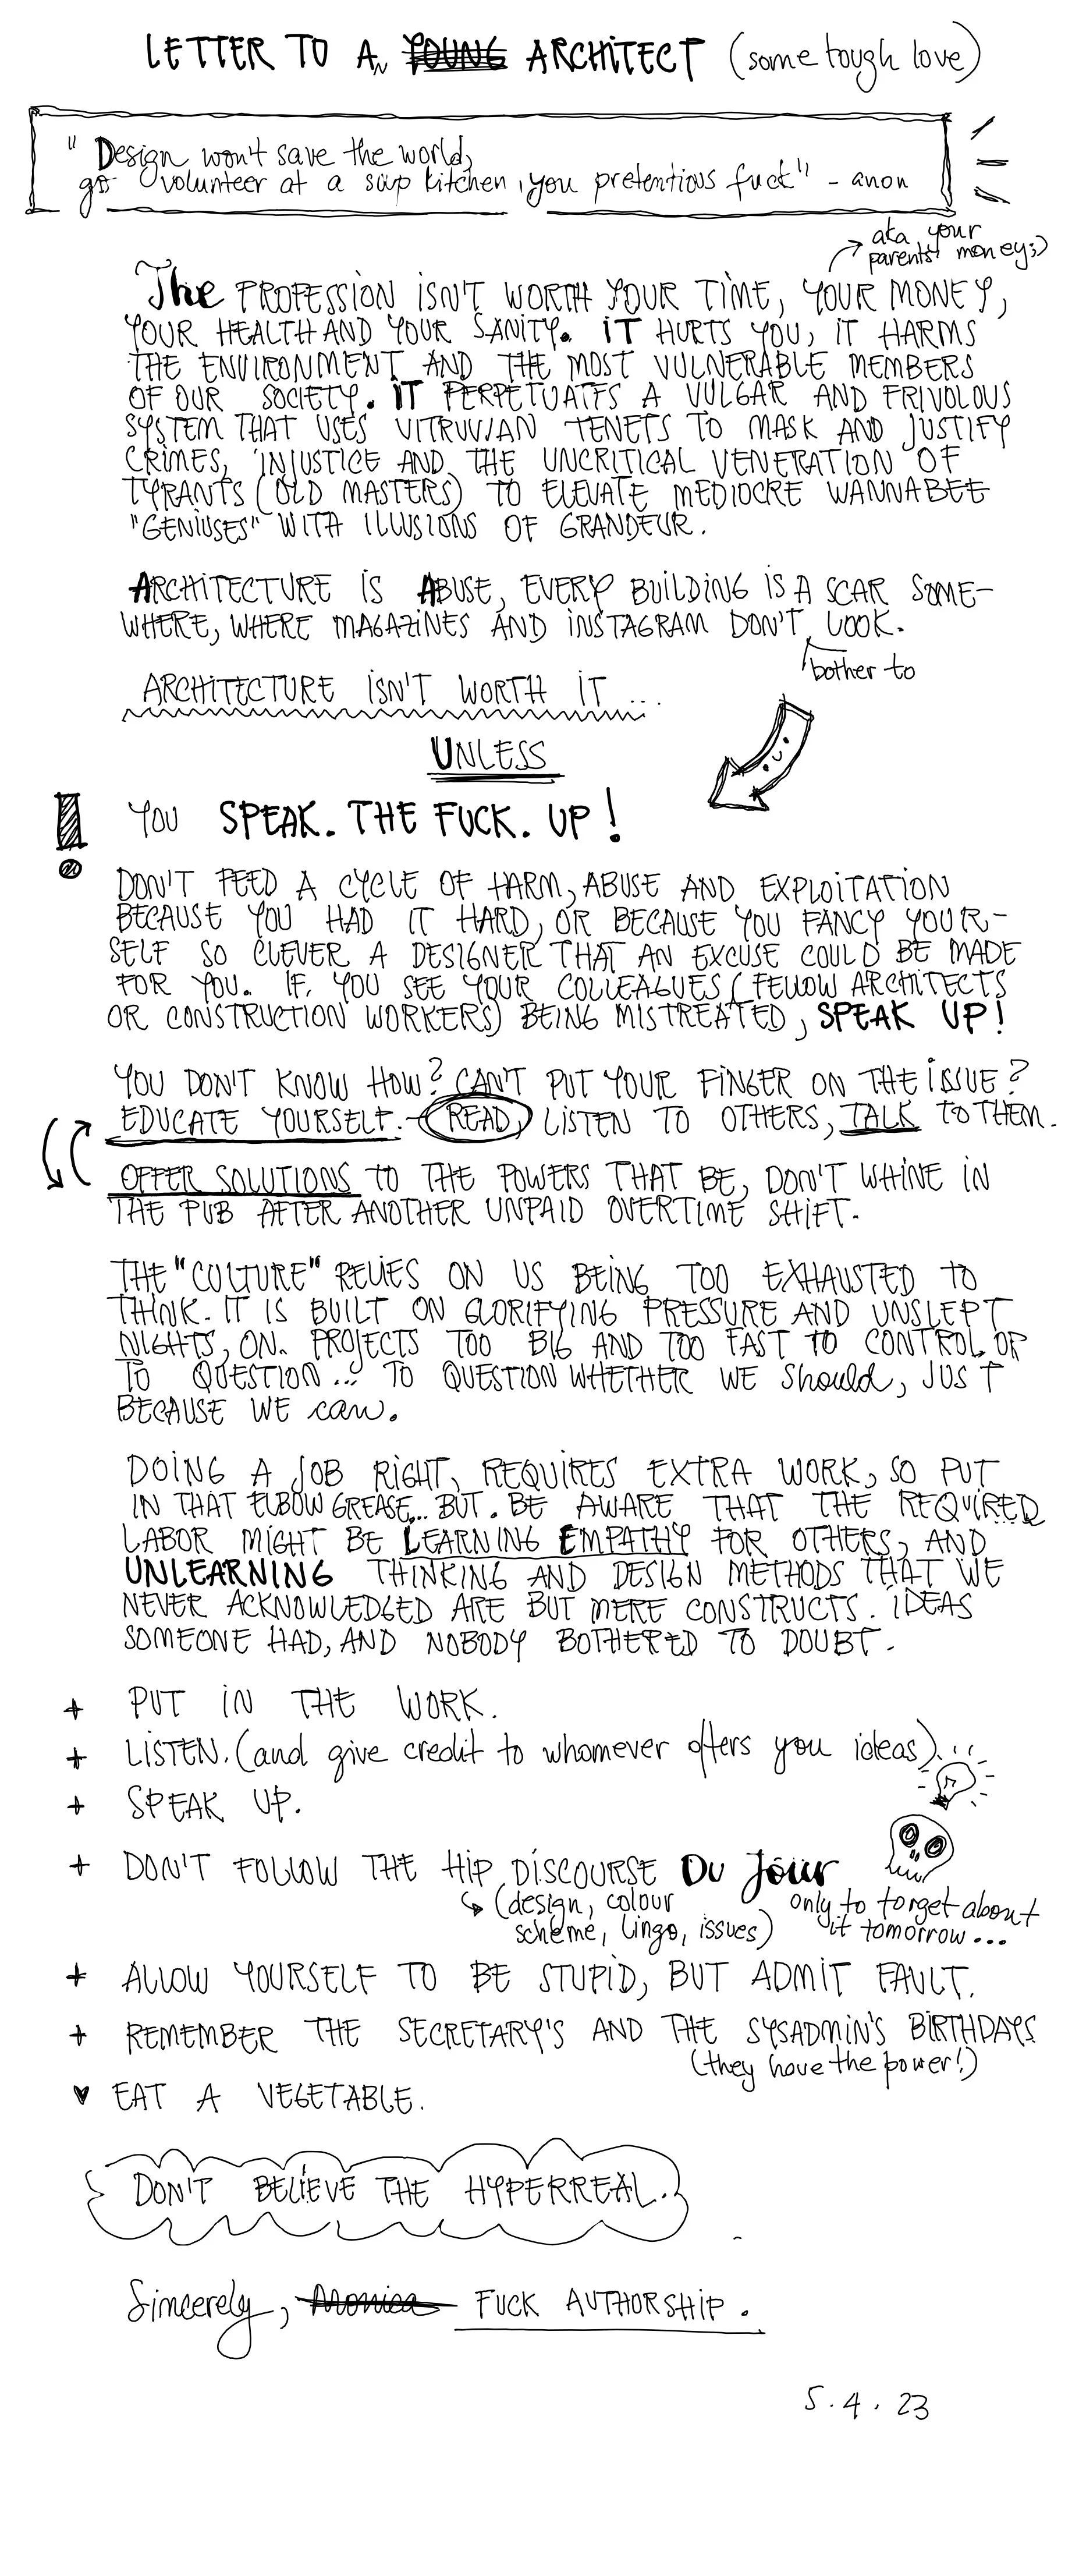 LETTER TO AN YOUNG ARCHITECT (some tough love)
" Design won't save the world,
go volunteer at a soup kitchen, you pretentious fuck" - anon
aka your
parents' money ;)
The PROFESSION ISN'T WORTH YOUR TIME, YOUR MONEY,
YOUR HEALTH AND YOUR SANITY. IT HURTS YOU, IT HARMS
THE ENVIRONMENT AND THE MOST VULNERABLE MEMBERS
OF OUR SOCIETY. IT PERPETUATES A VULGAR AND FRIVOLOUS
SYSTEM THAT USES VITRUVIAN TENETS TO MASK AND JUSTIFY
CRIMES, INJUSTICE AND THE UNCRITICAL VENERATION OF
TYRANTS (OLD MASTERS) TO ELEVATE MEDIOCRE WANNABEE
"GENIUSES" WITH ILLUSIONS OF GRANDEUR.
ARCHITECTURE IS ABUSE, EVERY BUILDING IS A SCAR SOME-
WHERE, WHERE MAGAZINES AND INSTAGRAM DON'T LOOK.
bother to
ARCHITECTURE ISN'T WORTH IT ...
UNLESS
YOU SPEAK. THE FUCK. UP!
DON'T FEED A CYCLE OF HARM, ABUSE AND EXPLOITATION
BECAUSE YOU HAD IT HARD, OR BECAUSE YOU FANCY YOUR-
SELF SO CLEVER A DESIGNER THAT AN EXCUSE COULD BE MADE
FOR YOU. IF YOU SEE YOUR COLLEAGUES (FELLOW ARCHITECTS
OR CONSTRUCTION WORKERS) BEING MISTREATED, SPEAK UP!
YOU DON'T KNOW HOW? CAN'T PUT YOUR FINGER ON THE ISSUE?
EDUCATE YOURSELF. - READ, LISTEN TO OTHERS, TALK TO THEM.
OFFER SOLUTIONS TO THE POWERS THAT BE, DON'T WHINE IN
THE PUB AFTER ANOTHER UNPAID OVERTIME SHIFT.
THE "CULTURE" RELIES ON US BEING TOO EXHAUSTED TO
THINK. IT IS BUILT ON GLORIFYING PRESSURE AND UNSLEPT
NIGHTS, ON PROJECTS TOO BIG AND TOO FAST TO CONTROL OR
TO QUESTION ... TO QUESTION WHETHER WE should, JUST
BECAUSE WE can.
DOING A JOB RIGHT, REQUIRES EXTRA WORK, SO PUT
IN THAT ELBOW GREASE... BUT. BE AWARE THAT THE REQUIRED
LABOR MIGHT BE LEARNING EMPATHY FOR OTHERS, AND
UNLEARNING THINKING AND DESIGN METHODS THAT WE
NEVER ACKNOWLEDGED ARE BUT MERE CONSTRUCTS. IDEAS
SOMEONE HAD, AND NOBODY BOTHERED TO DOUBT.
+ PUT IN THE WORK.
+ LISTEN. (and give credit to whomever offers you ideas)...
+ SPEAK UP.
+ DON'T FOLLOW THE HIP DISCOURSE DU JOUR
(design, colour
scheme, lingo, issues)
only to forget about
it tomorrow...
+ ALLOW YOURSELF TO BE STUPID, BUT ADMIT FAULT.
+ REMEMBER THE SECRETARY'S AND THE SYSADMIN'S BIRTHDAYS
(they have the power!)
♥ EAT A VEGETABLE.
DON'T BELIEVE THE HYPERREAL.
Sincerely, Monica FUCK AUTHORSHIP.
5.4.23